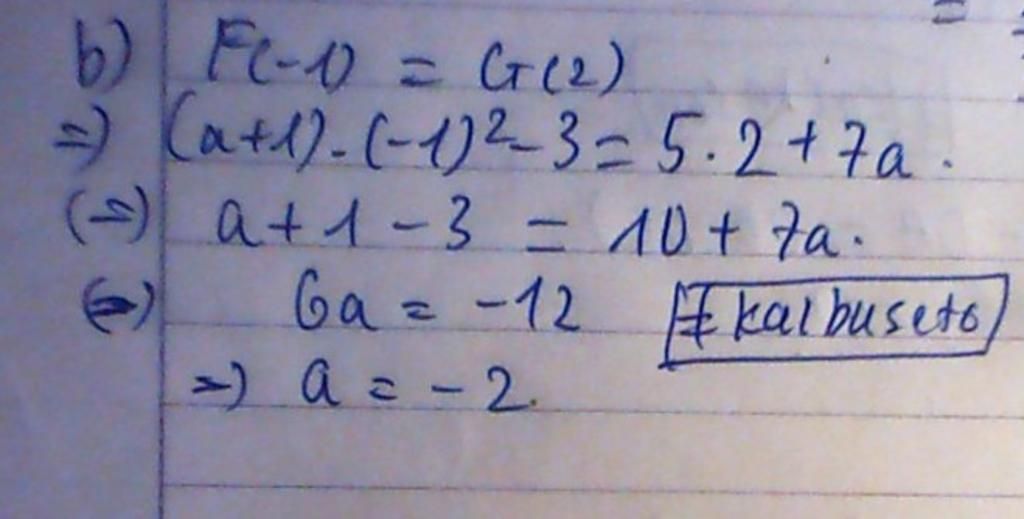 b) F(-1) = G(2)
=> (a+1).(-1)²-3 = 5.2+7a.
(=>) a+1-3 = 10+7a.
(=>) 6a = -12 #kalbuseto
=> a = -2.